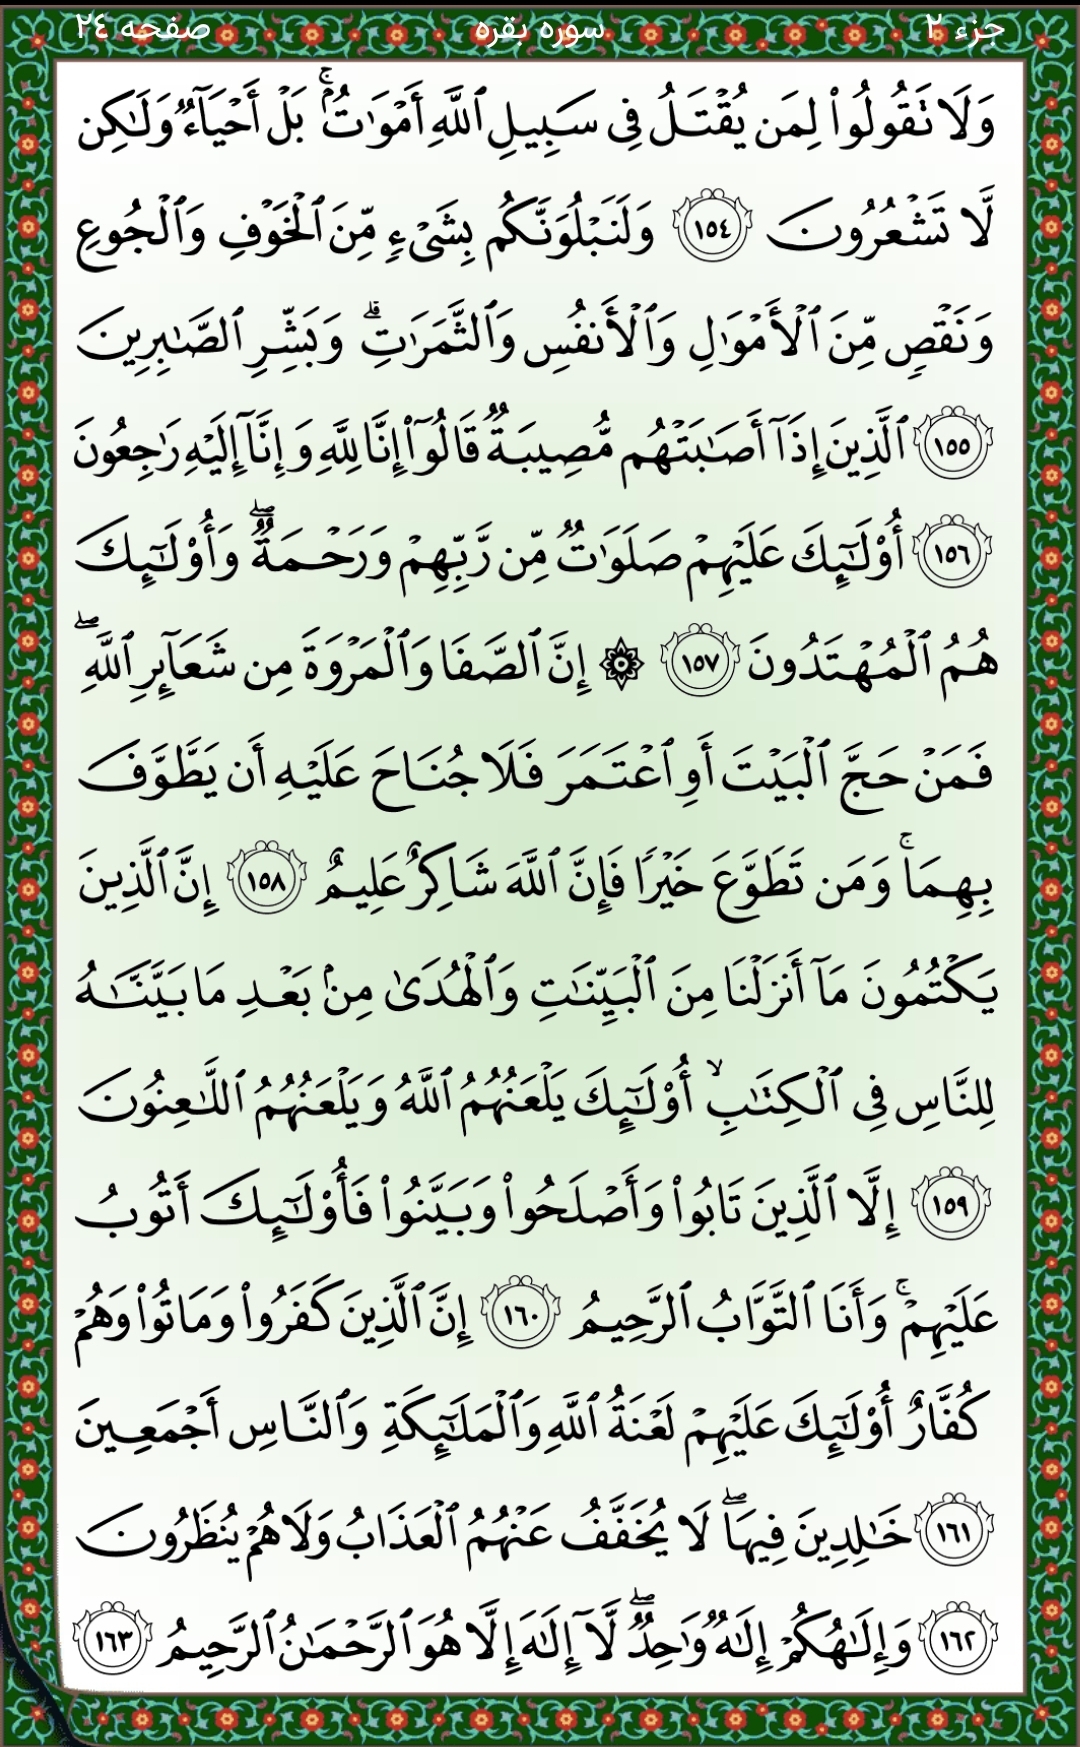 جزء ٢ سوره بقره صفحه ٢٤
وَلَا تَقُولُوا۟ لِمَن يُقْتَلُ فِى سَبِيلِ ٱللَّهِ أَمْوَٰتٌۢ ۚ بَلْ أَحْيَآءٌ وَلَـٰكِن
لَّا تَشْعُرُونَ ١٥٤ وَلَنَبْلُوَنَّكُم بِشَىْءٍ مِّنَ ٱلْخَوْفِ وَٱلْجُوعِ
وَنَقْصٍ مِّنَ ٱلْأَمْوَٰلِ وَٱلْأَنفُسِ وَٱلثَّمَرَٰتِ ۗ وَبَشِّرِ ٱلصَّـٰبِرِينَ
١٥٥ ٱلَّذِينَ إِذَآ أَصَـٰبَتْهُم مُّصِيبَةٌ قَالُوٓا۟ إِنَّا لِلَّهِ وَإِنَّآ إِلَيْهِ رَٰجِعُونَ
١٥٦ أُو۟لَـٰٓئِكَ عَلَيْهِمْ صَلَوَٰتٌ مِّن رَّبِّهِمْ وَرَحْمَةٌ ۖ وَأُو۟لَـٰٓئِكَ
هُمُ ٱلْمُهْتَدُونَ ١٥٧ ۞ إِنَّ ٱلصَّفَا وَٱلْمَرْوَةَ مِن شَعَآئِرِ ٱللَّهِ ۖ
فَمَنْ حَجَّ ٱلْبَيْتَ أَوِ ٱعْتَمَرَ فَلَا جُنَاحَ عَلَيْهِ أَن يَطَّوَّفَ
بِهِمَا ۚ وَمَن تَطَوَّعَ خَيْرًا فَإِنَّ ٱللَّهَ شَاكِرٌ عَلِيمٌ ١٥٨ إِنَّ ٱلَّذِينَ
يَكْتُمُونَ مَآ أَنزَلْنَا مِنَ ٱلْبَيِّنَـٰتِ وَٱلْهُدَىٰ مِنۢ بَعْدِ مَا بَيَّنَّـٰهُ
لِلنَّاسِ فِى ٱلْكِتَـٰبِ ۙ أُو۟لَـٰٓئِكَ يَلْعَنُهُمُ ٱللَّهُ وَيَلْعَنُهُمُ ٱللَّـٰعِنُونَ
١٥٩ إِلَّا ٱلَّذِينَ تَابُوا۟ وَأَصْلَحُوا۟ وَبَيَّنُوا۟ فَأُو۟لَـٰٓئِكَ أَتُوبُ
عَلَيْهِمْ ۚ وَأَنَا ٱلتَّوَّابُ ٱلرَّحِيمُ ١٦٠ إِنَّ ٱلَّذِينَ كَفَرُوا۟ وَمَاتُوا۟ وَهُمْ
كُفَّارٌ أُو۟لَـٰٓئِكَ عَلَيْهِمْ لَعْنَةُ ٱللَّهِ وَٱلْمَلَـٰٓئِكَةِ وَٱلنَّاسِ أَجْمَعِينَ
١٦١ خَـٰلِدِينَ فِيهَا ۖ لَا يُخَفَّفُ عَنْهُمُ ٱلْعَذَابُ وَلَا هُمْ يُنظَرُونَ
١٦٢ وَإِلَـٰهُكُمْ إِلَـٰهٌ وَٰحِدٌ ۖ لَّآ إِلَـٰهَ إِلَّا هُوَ ٱلرَّحْمَـٰنُ ٱلرَّحِيمُ ١٦٣